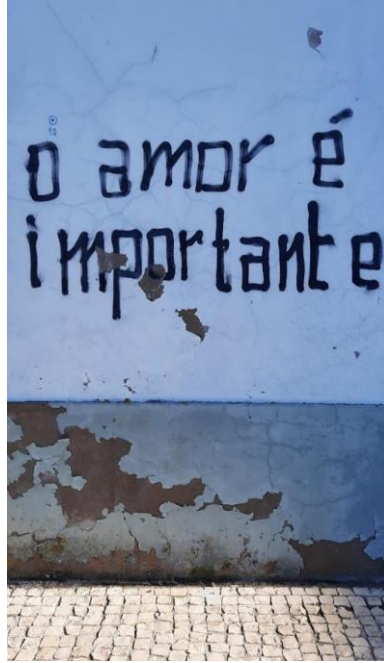 10
o amor é
importante